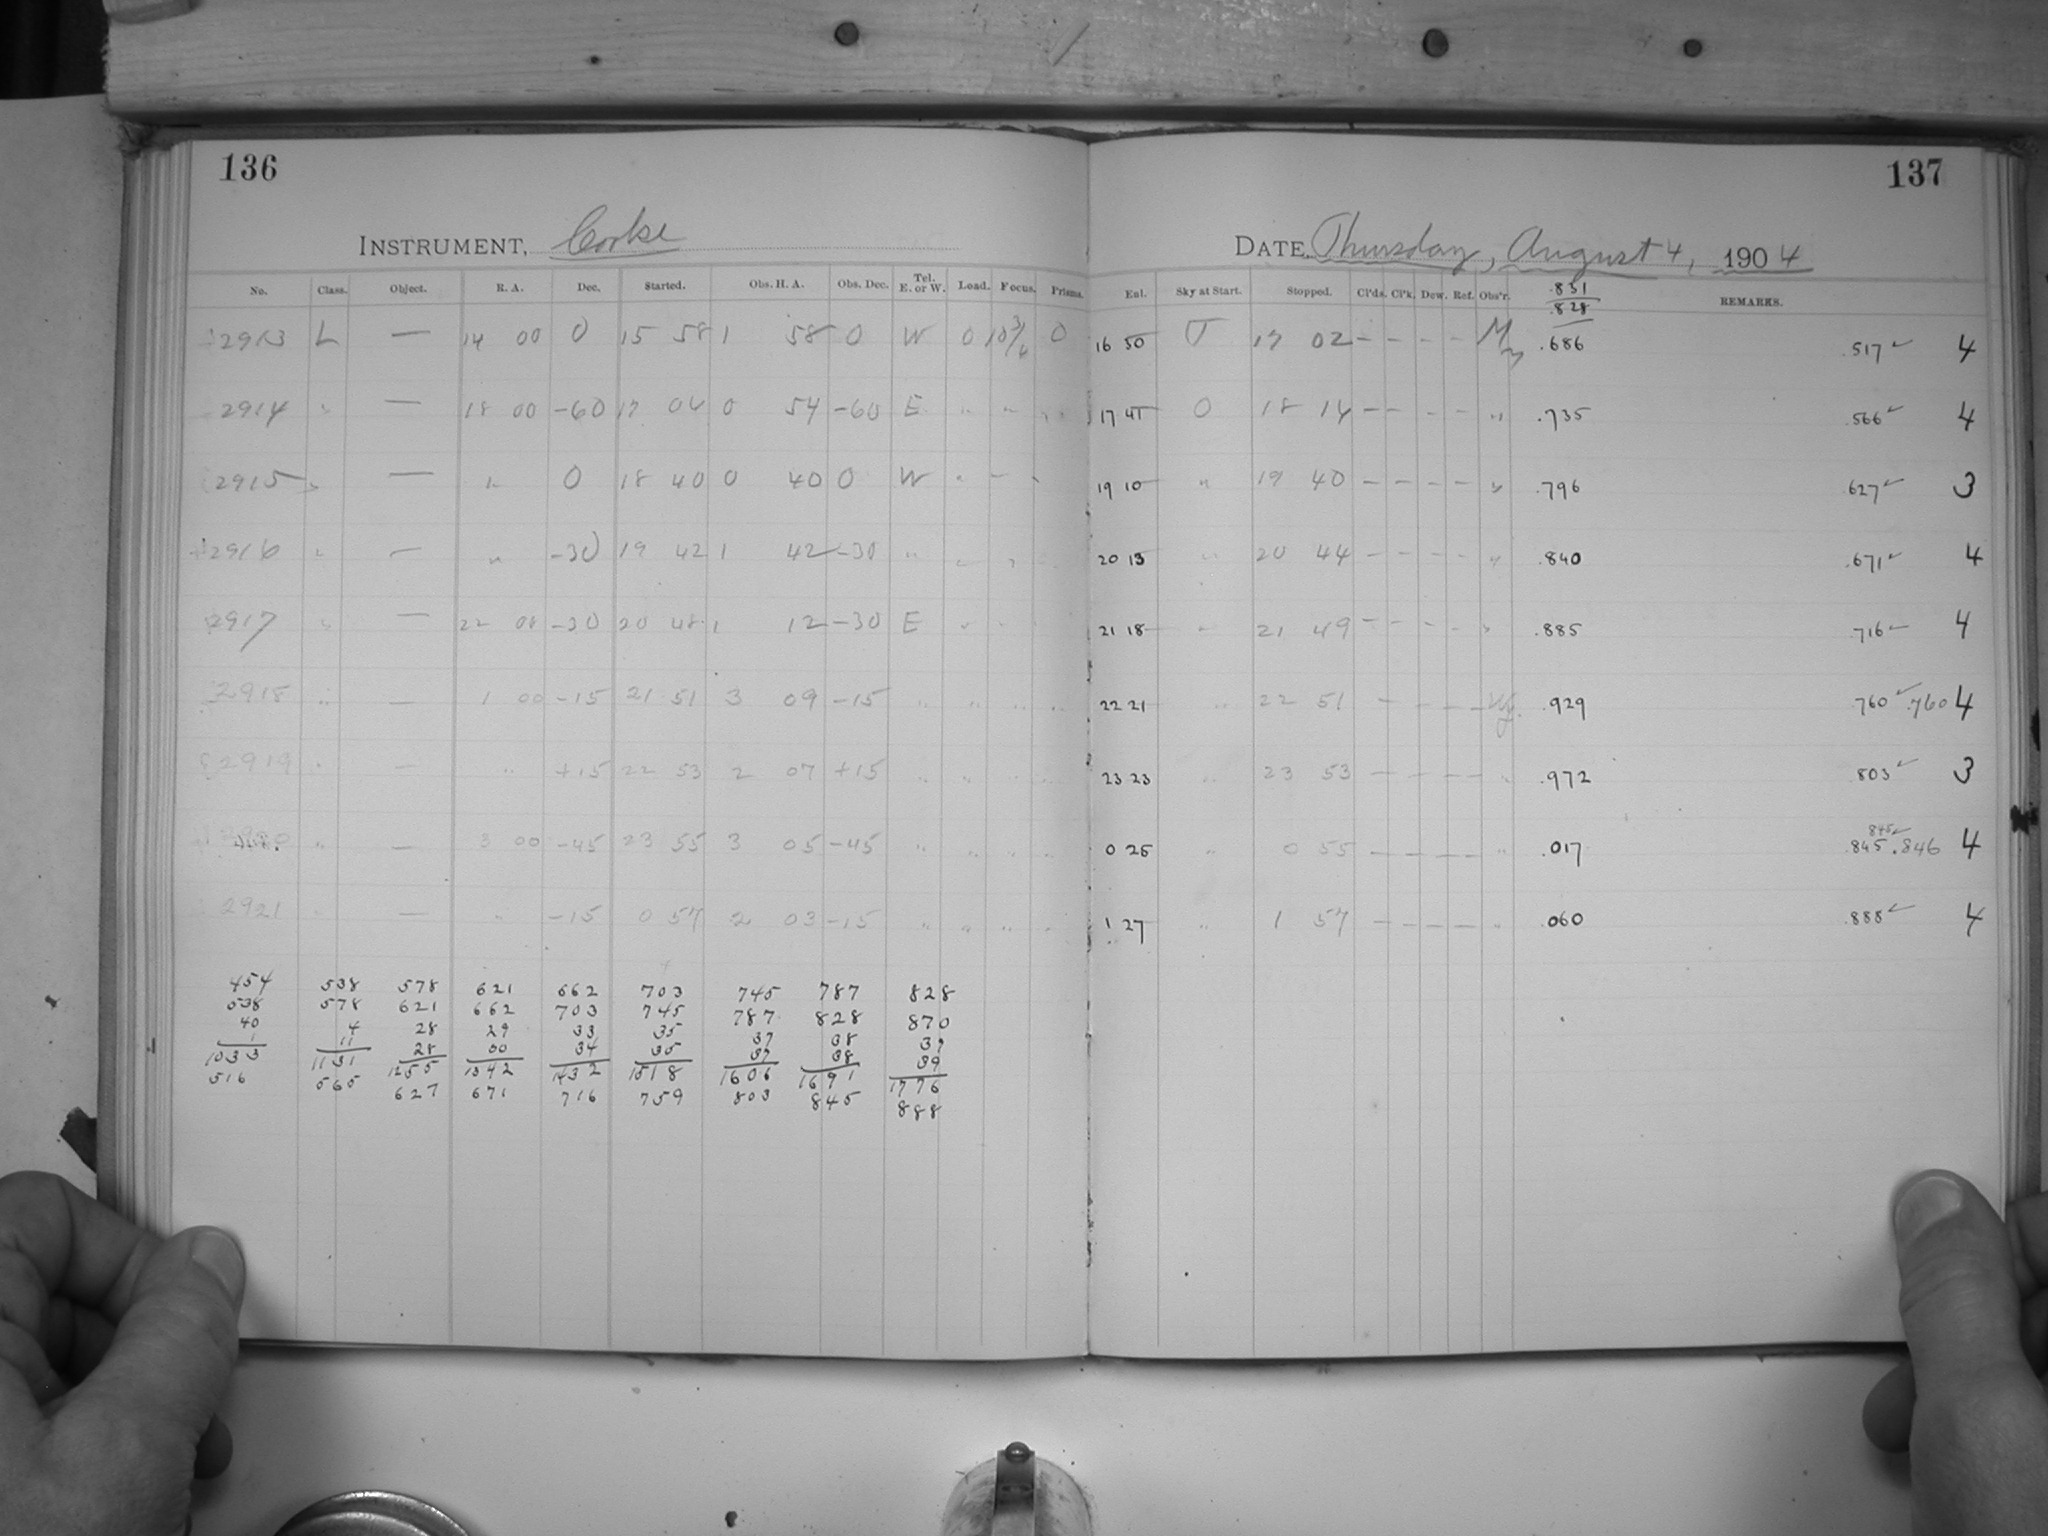 136
137
INSTRUMENT, Cooke
DATE, Thursday, August 4, 1904
No. Class. Object. R. A. Dec. Started. Obs. H. A. Obs. Dec. Tel. E. or W. Load. Focus. Prisms. Eul. Sky at Start. Stopped. Cl'ds. Cl'k. Dew. Ref. Obs'r. .831 .828 REMARKS.
2913 L — 14 00 0 15 58 1 58 0 W 0 10 3/4 0 16 50 17 02 - - - - .686 .517 ✓ 4
2914 " — 18 00 -60 17 04 -60 E " " " 17 45 0 18 14 - - - - " .735 .566 ✓ 4
2915 " — " 0 18 40 0 40 0 W " " " 19 10 " 19 40 - - - - " .796 .627 ✓ 3
2916 " — " -30 19 42 1 42 -30 " " " 20 13 " 20 44 - - - - " .840 .671 ✓ 4
2917 " — 22 08 -30 20 48 1 12 -30 E " " 21 18 " 21 49 - - - - " .885 .716 ✓ 4
2918 " — 1 00 -15 21 51 3 09 -15 " " " " 22 21 " 22 51 - - - - .929 .760 ✓ .760 4
2919 " — " +15 22 53 2 07 +15 " " " " 23 23 " 23 53 - - - - " .972 .803 ✓ 3
" — 3 00 -45 23 55 3 05 -45 " " " " 0 25 " 0 55 - - - - " .017 845 ✓ .845 .846 4
2921 " — " -15 0 57 2 03 -15 " " " " 1 27 " 1 57 - - - - " .060 .888 ✓ 4
454 538 578 621 662 703 745 787 828
538 578 621 662 703 745 787 828 870
40 4 28 29 33 35 37 38 39
1 11 28 30 34 35 37 38 39
1033 1131 1255 1342 1432 1518 1606 1691 1776
516 565 627 671 716 759 803 845 888